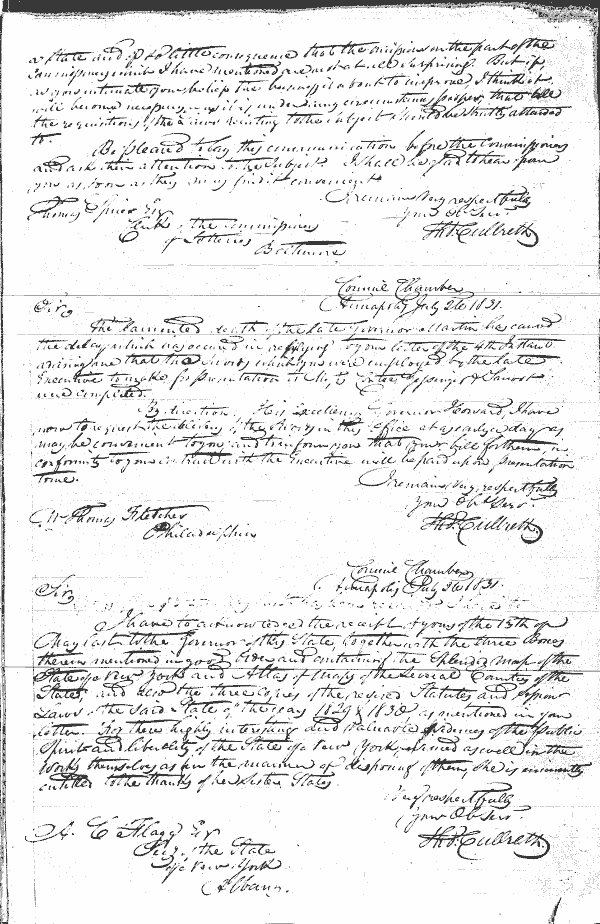 a State and of so little consequence that the omissions on the part of the
Commissioners which I have mentioned are not at all surprising. But if,
as you intimate you believe the business is about to improve, I think it
will become necessary, as it is under any circumstances proper, that all
the requisitions of the Laws relating to the subject should be strictly attended
to.
Be pleased to lay this communication before the Commissioners
and ask their attention to the subject. I shall be glad to hear from
you as soon as they may find it convenient.
I remain very respectfully
Your Ob. Serv.
Thomas Spicer Esq
Clerk of the Commissioners
of Lotteries
Baltimore
Th. Culbreth
Council Chamber
Annapolis July 26 1831.
Sir,
The lamented death of the late Governor Martin has caused
the delay which has occurred in replying to your letter of the 4th Instant
advising me that the Swords which you were employed by the late
Executive to make for presentation to
were completed.
By direction of His Excellency Governor Howard, I have
now to request the delivery of the Swords in this Office at as early a day as
may be convenient to you, and to inform you that your bill for them, in
conformity to your contract with the Executive will be paid upon presentation
to me.
I remain very respectfully
Your Ob. Serv.
Th. Culbreth
Mr Thomas Fletcher
Philadelphia
Council Chamber
Annapolis July 26 1831.
Sir,
I have to acknowledge the receipt of yours of the 13th of
May last to the Governor of this State, together with the three Boxes
therein mentioned in good order and containing the Splendid Map of the
State of New York and Atlas of Maps of the Several Counties of the
State, and also the three copies of the revised Statutes and
Laws of the said State of the years 1829 & 1830 as mentioned in your
letter. For these highly interesting and valuable evidences of the Public
Spirit and liberality of the State of New York, evinced as well in the
Works themselves as in the manner of disposing of them, she is eminently
entitled to the thanks of her Sister States.
Very respectfully
Your Ob. Serv.
Th. Culbreth
A. C. Flagg Esq
Secy of the State
of New York
Albany.